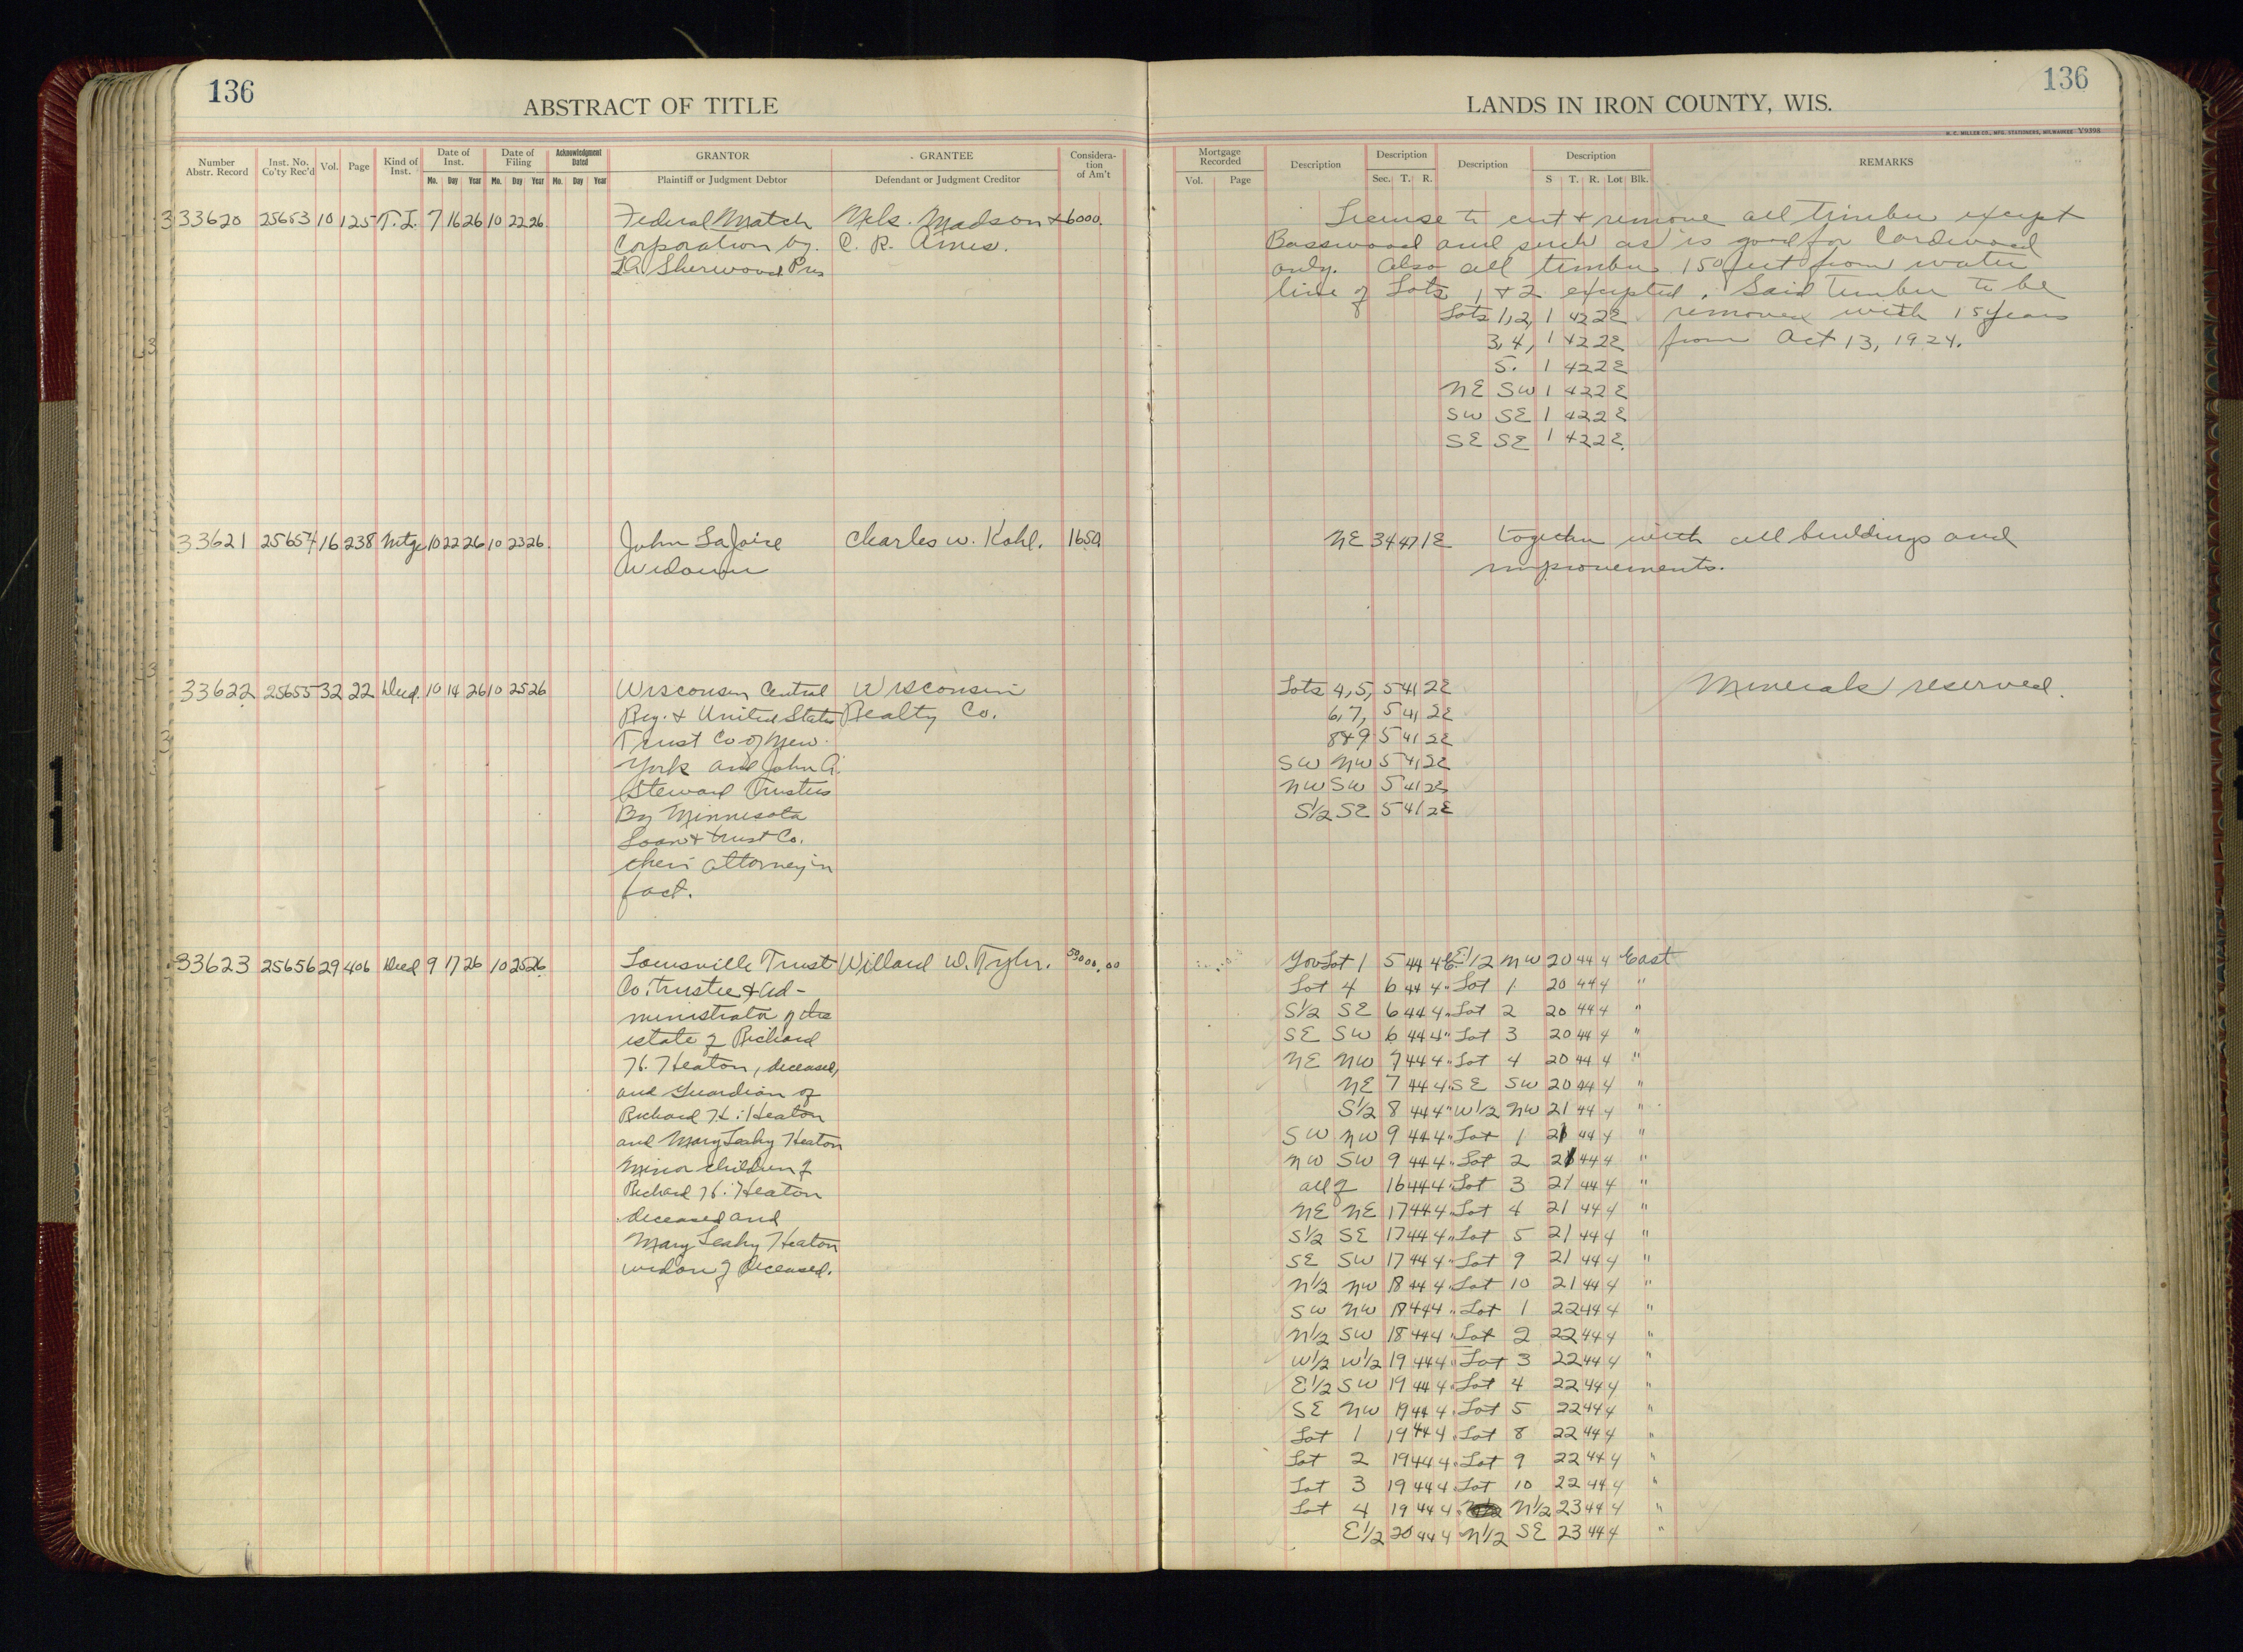 136
136
ABSTRACT OF TITLE
LANDS IN IRON COUNTY, WIS.
H. C. MILLER CO., MFG. STATIONERS, MILWAUKEE Y9398
Number Abstr. Record Inst. No. Co'ty Rec'd Vol. Page Kind of Inst. Date of Inst. Date of Filing Acknowledgment Dated GRANTOR GRANTEE Considera-tion of Am't
Mo. Day Year Mo. Day Year Mo. Day Year Plaintiff or Judgment Debtor Defendant or Judgment Creditor
Mortgage Recorded Description Description Description Description REMARKS
Vol. Page Sec. T. R. S T. R. Lot Blk.
33620 25653 10 125 T. L. 7 16 26 10 22 26. Federal Match Nels. Madson & 6000.
Corporation by. C. R. Ames.
Sherwood Pres
License to cut & remove all timber except
Basswood and such as is good for Cordwood
only. Also all timber 150 feet from water
line of Lots 1 & 2 excepted. Said timber to be
Lots 1, 2, 1 42 2E removed with 15 years
3, 4, 1 42 2E from Oct 13, 1924.
5. 1 42 2E
NE SW 1 42 2E
SW SE 1 42 2E
SE SE 1 42 2E
33621 25654 16 238 Mtge 10 22 26 10 23 26. John LaJoice Charles W. Kohl. 1650.
Widower
NE 34 47 1E together with all buildings and
improvements.
33622 25655 32 22 Deed. 10 14 26 10 25 26 Wisconsin Central Wisconsin
Rey. & United States Realty Co.
Trust Co of New
York and John A.
Steward Trustees
By Minnesota
Loan & Trust Co.
their attorney in
fact.
Lots 4, 5, 5 41 2E Minerals reserved.
6, 7, 5 41 2E
8 & 9 5 41 2E
SW NW 5 41 2E
NW SW 5 41 2E
S1/2 SE 5 41 2E
33623 25656 29 406 Deed 9 17 26 10 25 26 Louisville Trust Willard W. Tyler. 50,000.00
Co. trustee & ad-
ministrator of the
estate of Richard
H. Heaton, deceased,
and Guardian of
Richard H. Heaton
and Mary Leahy Heaton
Minor children of
Richard H. Heaton
deceased and
Mary Leahy Heaton
widow of deceased.
Gov Lot 1 5 44 4 E. E1/2 NW 20 44 4 East
Lot 4 6 44 4 " Lot 1 20 44 4 "
S1/2 SE 6 44 4 " Lot 2 20 44 4 "
SE SW 6 44 4 " Lot 3 20 44 4 "
NE NW 7 44 4 " Lot 4 20 44 4 "
NE 7 44 4 " SE SW 20 44 4 "
S1/2 8 44 4 " W1/2 NW 21 44 4 "
SW NW 9 44 4 " Lot 1 21 44 4 "
NW SW 9 44 4 " Lot 2 21 44 4 "
all of 16 44 4 " Lot 3 21 44 4 "
NE NE 17 44 4 " Lot 4 21 44 4 "
S1/2 SE 17 44 4 " Lot 5 21 44 4 "
SE SW 17 44 4 " Lot 9 21 44 4 "
N1/2 NW 18 44 4 " Lot 10 21 44 4 "
SW NW 18 44 4 " Lot 1 22 44 4 "
N1/2 SW 18 44 4 " Lot 2 22 44 4 "
W1/2 W1/2 19 44 4 " Lot 3 22 44 4 "
E1/2 SW 19 44 4 " Lot 4 22 44 4 "
SE NW 19 44 4 " Lot 5 22 44 4 "
Lot 1 19 44 4 " Lot 8 22 44 4 "
Lot 2 19 44 4 " Lot 9 22 44 4 "
Lot 3 19 44 4 " Lot 10 22 44 4 "
Lot 4 19 44 4 " N1/2 23 44 4 "
E1/2 20 44 4 N1/2 SE 23 44 4 "